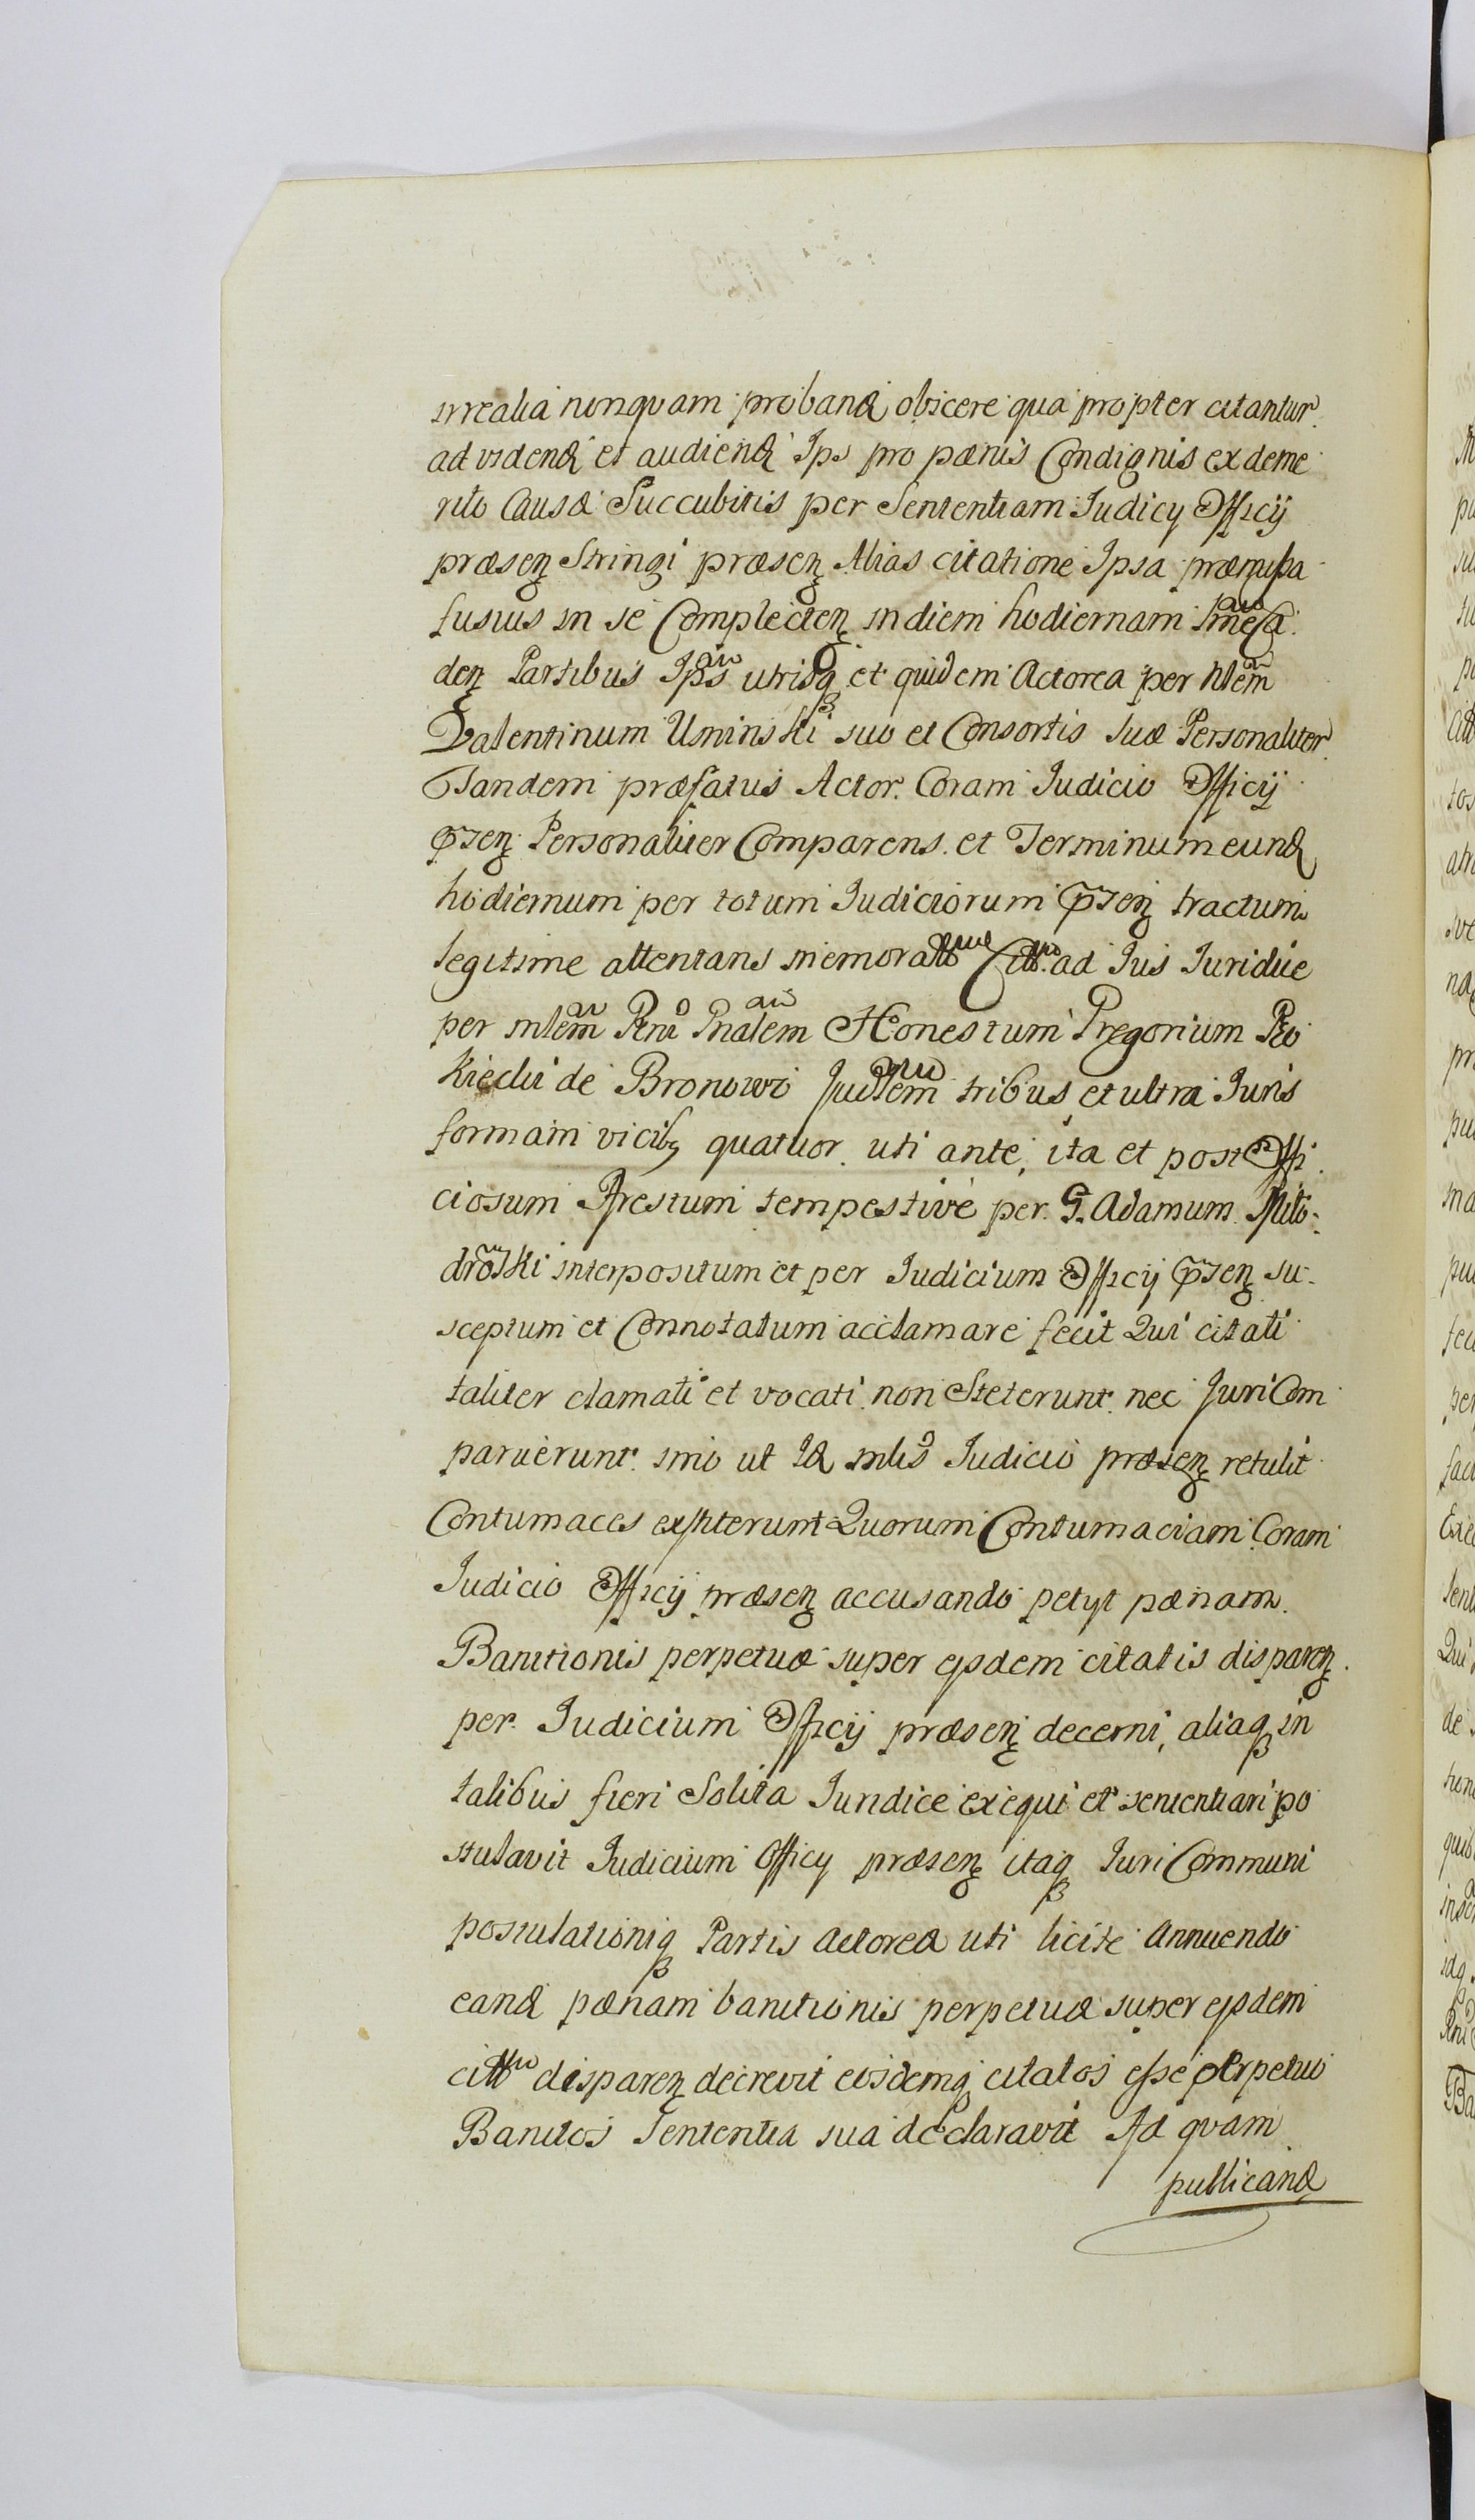 irrealia nunquam proband obicere qua propter citantur
ad vidend et audiend Ips pro pœnis Condignis ex deme
rito Causæ Succubitis per Sententiam Judicij Officij
præsen Stringi præsen Alias citatione Ipsa præmissa
fusius in se Complecten in diem hodiernam
den Partibus Ips utrisq et quidem Actorea per
Valentinum Uminski suo et Consortis suæ Personaliter
Tandem præfatus Actor Coram Judicio Officij
psen Personaliter Comparens et Terminum eund
hodiernum per totum Judiciorum psen tractum
legitime attentans memorat Citt ad Jus Juridice
per mlem Rni Pnalem Honestum Gregorium
de Bronowo tribus et ultra Juris
formam vicib quatuor uti ante, ita et post Offi
ciosum Arestum tempestive per G. Adamum
interpositum et per Judicium Officij psen su
sceptum et Connotatum acclamare fecit Qui citati
taliter clamati et vocati non Steterunt nec Juri Com
paruerunt imo ut Id mlis Judicio præsen retulit
Contumaces exstiterunt Quorum Contumaciam Coram
Judicio Officij præsen accusando petyt pœnam
Banitionis perpetuæ super ejsdem citatis disparen
per Judicium Officij præsen decerni, aliaq in
talibus fieri Solita Juridice exequi et sententiari po
stulavit Judicium Officij præsen itaq Juri Communi
postulationiq Partis Actoreæ uti licite Annuendo
eand pœnam banitionis perpetuæ super ejsdem
citt disparen decrevit eosdemq citatos esse perpetuo
Banitos Sententia sua declaravit Ad quam
publicand